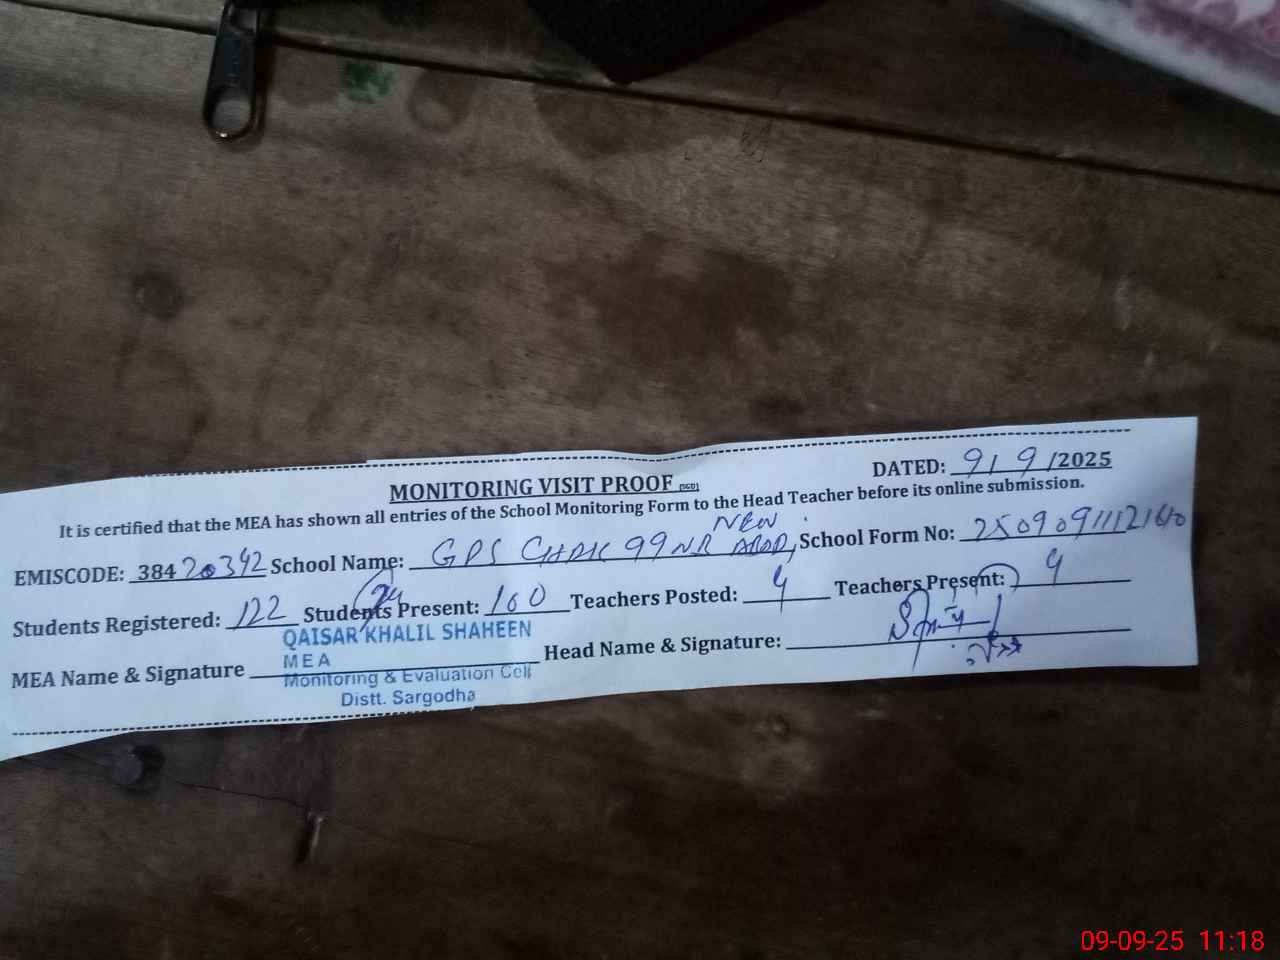 DATED: 9/9/2025
MONITORING VISIT PROOF (SGD)
It is certified that the MEA has shown all entries of the School Monitoring Form to the Head Teacher before its online submission.
NEW
EMISCODE: 38420342 School Name: GPS CHAK 99 NB ABAD, School Form No:
Students Registered: 122 Students Present: 100 Teachers Posted: 4 Teachers Present: 4
QAISAR KHALIL SHAHEEN
MEA
MEA Name & Signature Head Name & Signature:
Monitoring & Evaluation Cell
Distt. Sargodha
09-09-25 11:18